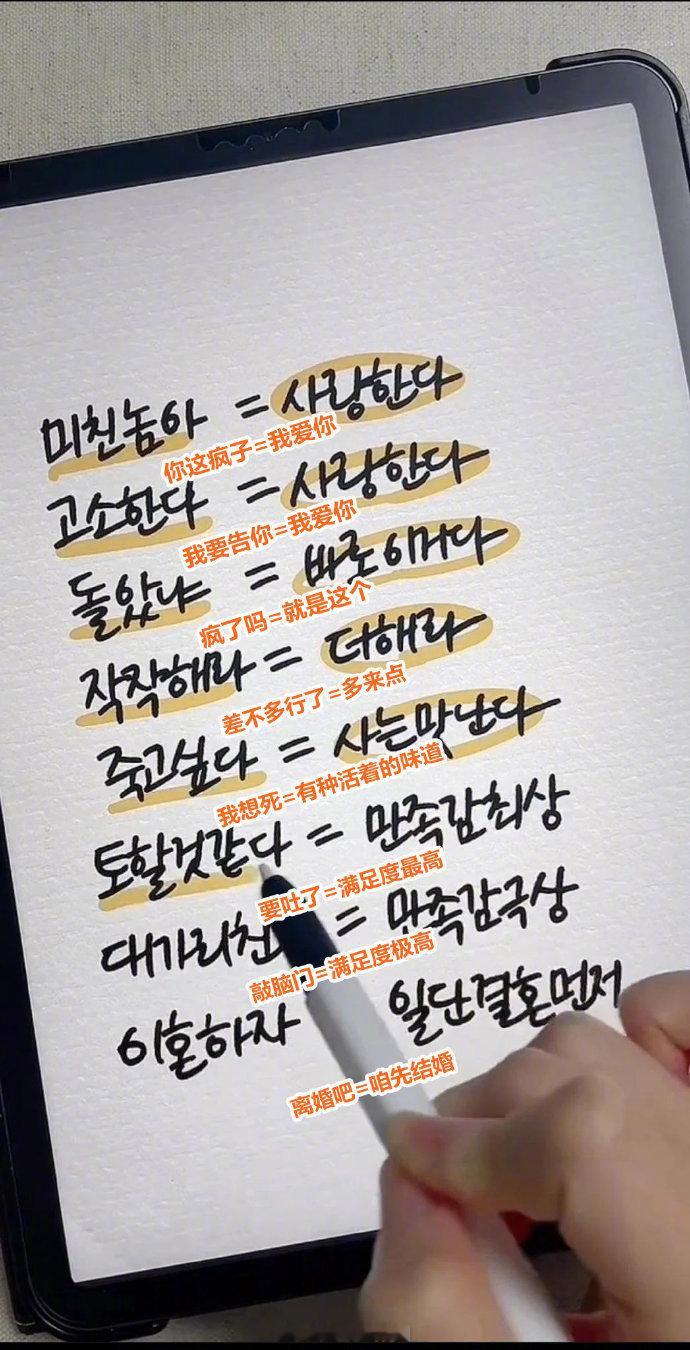 미친놈아 = 사랑한다
你这疯子=我爱你
고소한다 = 사랑한다
我要告你=我爱你
돌았냐 = 바로이거다
疯了吗=就是这个
작작해라 = 더해라
差不多行了=多来点
죽고싶다 = 사는맛난다
我想死=有种活着的味道
토할것같다 = 만족감최상
要吐了=满足度最高
대가리 = 만족감극상
敲脑门=满足度极高
이혼하자 일단결혼먼저
离婚吧=咱先结婚